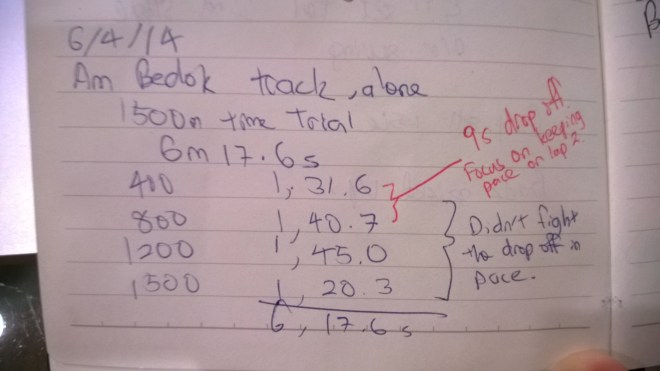 6/4/14
Am Bedok track, alone
1500m time Trial
6m 17.6s
400 1, 31.6
800 1, 40.7
1200 1, 45.0
1500 1, 20.3
6, 17.6s
9s drop off.
Focus on keeping
pace on lap 2
Didn't fight
the drop off in
pace.